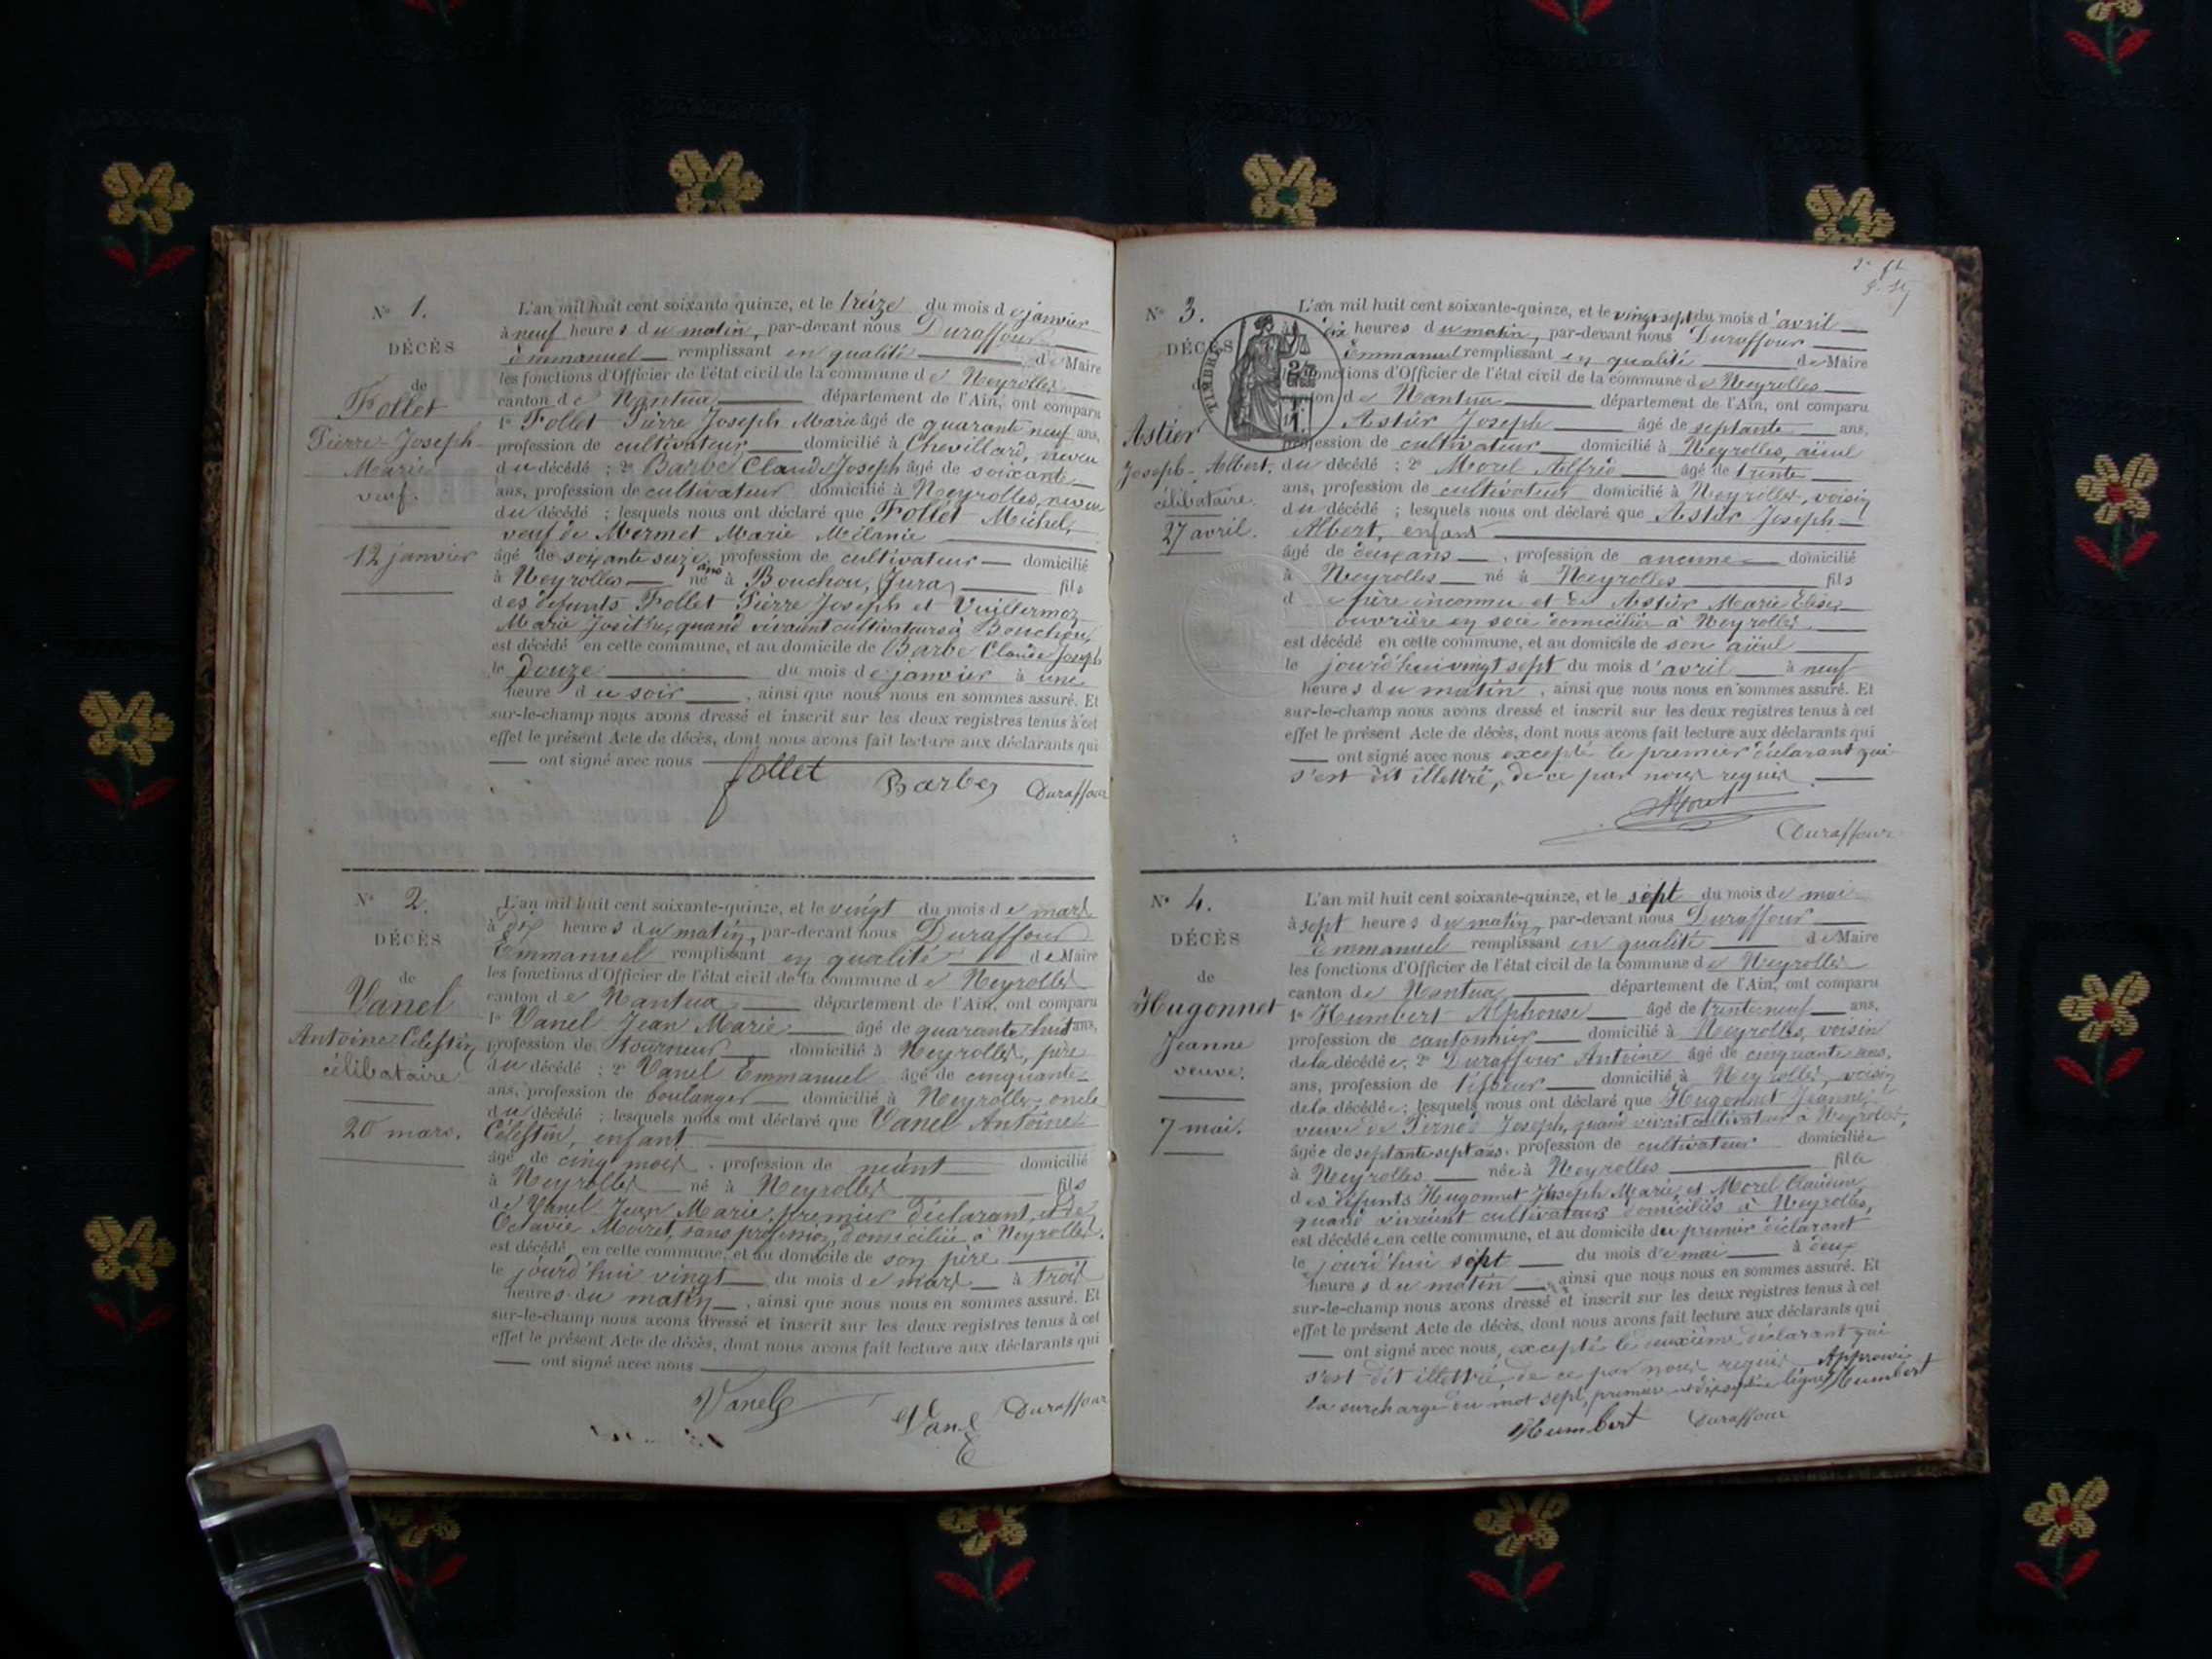 N° 1.
DÉCÈS
de
Follet
Pierre-Joseph-
Marie
veuf.
12 janvier
L'an mil huit cent soixante quinze, et le treize du mois de janvier
à neuf heures du matin, par-devant nous Duraffour
Emmanuel remplissant en qualité de Maire
les fonctions d'Officier de l'état civil de la commune de Neyrolles
canton de Nantua département de l'Ain, ont comparu
1° Follet Pierre Joseph Marie âgé de quarante neuf ans,
profession de cultivateur domicilié à Chevillard, neveu
du décédé ; 2° Barbe Claude Joseph âgé de soixante
ans, profession de cultivateur domicilié à Neyrolles, neveu
du décédé ; lesquels nous ont déclaré que Follet Michel,
veuf de Mermet Marie Mélanie
âgé de soixante seize ans, profession de cultivateur domicilié
à Neyrolles né à Bouchou, (Jura) fils
des défunts Follet Pierre Joseph et Vuillermoz
Marie quand vivaient cultivateurs à Bouchou,
est décédé en cette commune, et au domicile de Barbe Claude Joseph
le douze du mois de janvier à une
heure du soir, ainsi que nous nous en sommes assuré. Et
sur-le-champ nous avons dressé et inscrit sur les deux registres tenus à cet
effet le présent Acte de décès, dont nous avons fait lecture aux déclarants qui
ont signé avec nous
follet Barbe Duraffour
N° 2.
DÉCÈS
de
Vanel
Antoine Célestin
célibataire
20 mars.
L'an mil huit cent soixante-quinze, et le vingt du mois de mars
à dix heures du matin, par-devant nous Duraffour
Emmanuel remplissant en qualité de Maire
les fonctions d'Officier de l'état civil de la commune de Neyrolles
canton de Nantua département de l'Ain, ont comparu
1° Vanel Jean Marie âgé de quarante huit ans,
profession de tourneur domicilié à Neyrolles, père
du décédé ; 2° Vanel Emmanuel âgé de cinquante
ans, profession de boulanger domicilié à Neyrolles, oncle
du décédé ; lesquels nous ont déclaré que Vanel Antoine
Célestin, enfant
âgé de cinq mois, profession de néant domicilié
à Neyrolles né à Neyrolles fils
de Vanel Jean Marie, premier déclarant, et de
Octavie Moiret, sans profession, domiciliée à Neyrolles.
est décédé en cette commune, et au domicile de son père
le jourd'hui vingt du mois de mars à trois
heures du matin, ainsi que nous nous en sommes assuré. Et
sur-le-champ nous avons dressé et inscrit sur les deux registres tenus à cet
effet le présent Acte de décès, dont nous avons fait lecture aux déclarants qui
ont signé avec nous
Vanel Vanel E Duraffour
N° 3.
DÉCÈS
TIMBRES
Astier
Joseph-Albert,
célibataire.
27 avril.
L'an mil huit cent soixante-quinze, et le vingt sept du mois d'avril
dix heures du matin, par-devant nous Duraffour
Emmanuel remplissant en qualité de Maire
les fonctions d'Officier de l'état civil de la commune de Neyrolles
canton de Nantua département de l'Ain, ont comparu
Astier Joseph âgé de septante ans,
profession de cultivateur domicilié à Neyrolles, aïeul
du décédé ; 2° Morel Alfred âgé de trente
ans, profession de cultivateur domicilié à Neyrolles, voisin
du décédé ; lesquels nous ont déclaré que Astier Joseph
Albert, enfant
âgé de deux ans, profession de aucune domicilié
à Neyrolles né à Neyrolles fils
de père inconnu et de Astier Marie Elise,
ouvrière en soie domiciliée à Neyrolles
est décédé en cette commune, et au domicile de son aïeul
le jourd'hui vingt sept du mois d'avril à neuf
heures du matin, ainsi que nous nous en sommes assuré. Et
sur-le-champ nous avons dressé et inscrit sur les deux registres tenus à cet
effet le présent Acte de décès, dont nous avons fait lecture aux déclarants qui
ont signé avec nous excepté le premier déclarant qui
s'est dit illettré, de ce par nous requis.
Morel
Duraffour
N° 4.
DÉCÈS
de
Hugonnet
Jeanne
veuve.
7 mai.
L'an mil huit cent soixante-quinze, et le sept du mois de mai
à sept heures du matin, par-devant nous Duraffour
Emmanuel remplissant en qualité de Maire
les fonctions d'Officier de l'état civil de la commune de Neyrolles
canton de Nantua département de l'Ain, ont comparu
1° Humbert Alphonse âgé de trente neuf ans,
profession de cantonnier domicilié à Neyrolles, voisin
de la décédée, 2° Duraffour Antoine âgé de cinquante
ans, profession de tisseur domicilié à Neyrolles, voisin
de la décédée ; lesquels nous ont déclaré que Hugonnet Jeanne,
veuve de Pernod Joseph, quand vivait cultivateur à Neyrolles,
âgée de septante sept ans, profession de cultivateur domiciliée
à Neyrolles née à Neyrolles fille
des défunts Hugonnet Joseph Marie, et Morel Claudine
quand vivaient cultivateurs domiciliés à Neyrolles,
est décédée en cette commune, et au domicile du premier déclarant
le jourd'hui sept du mois de mai à deux
heures du matin ainsi que nous nous en sommes assuré. Et
sur-le-champ nous avons dressé et inscrit sur les deux registres tenus à cet
effet le présent Acte de décès, dont nous avons fait lecture aux déclarants qui
ont signé avec nous, excepté le deuxième déclarant qui
s'est dit illettré, de ce par nous requis. Approuvé
la surcharge du mot sept, première et lignes Humbert
Humbert Duraffour